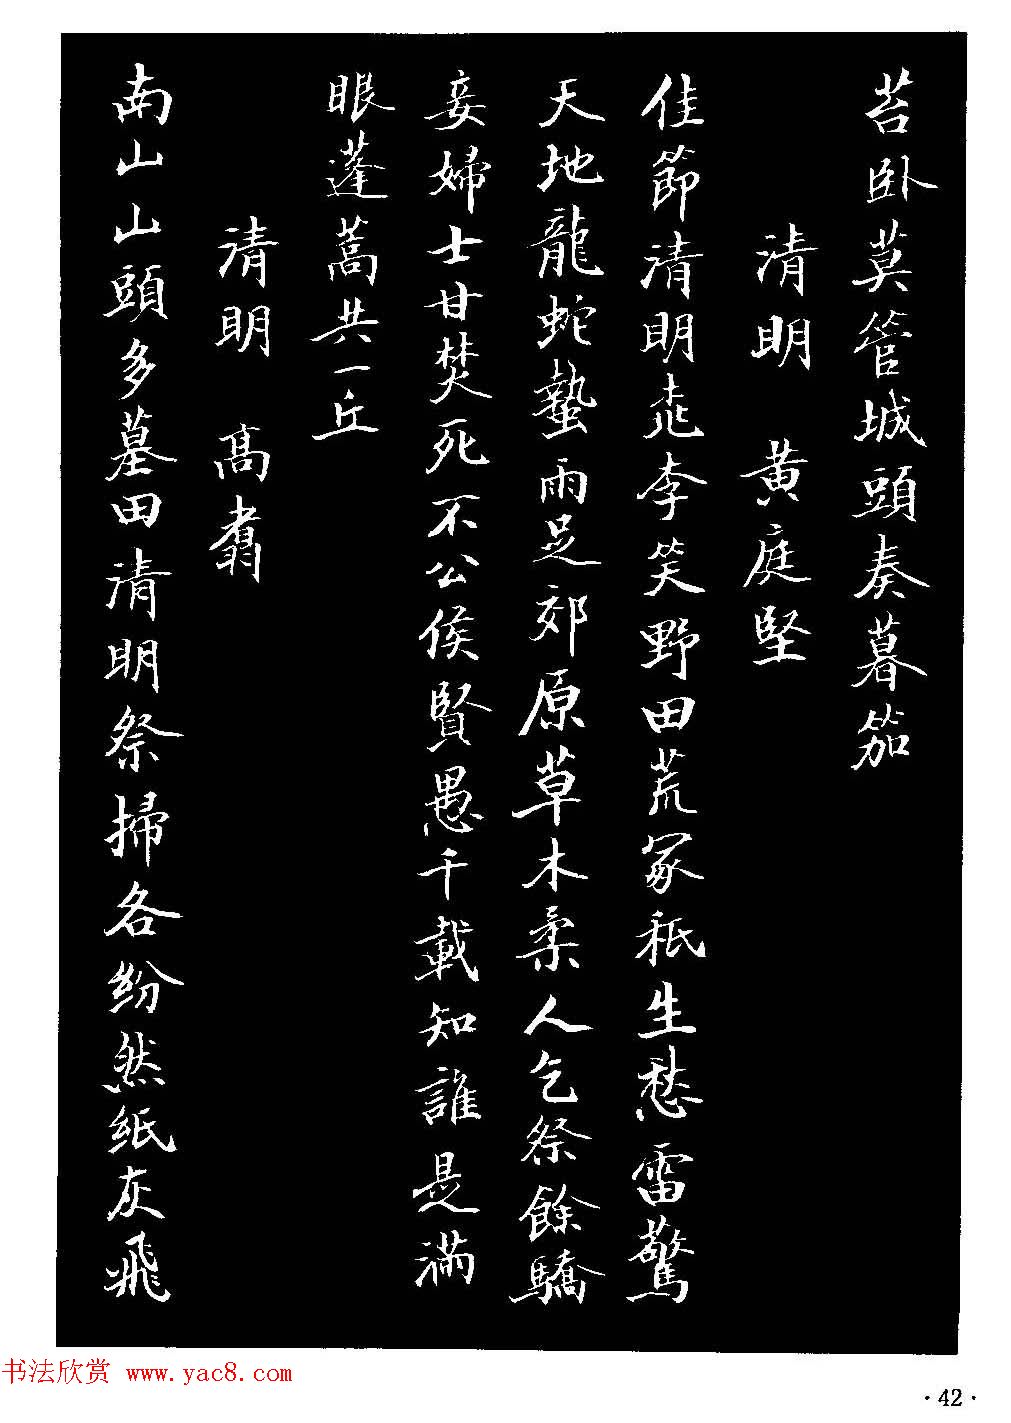 苔卧莫管城頭奏暮笳
清明 黄庭堅
佳節清明桃李笑野田荒冢秖生愁雷驚
天地龍蛇蟄雨足郊原草木柔人乞祭餘驕
妾婦士甘焚死不公侯賢愚千載知誰是滿
眼蓬蒿共一丘
清明 高翥
南山山頭多墓田清明祭掃各紛然紙灰飛
书法欣赏 www.yac8.com
·42·